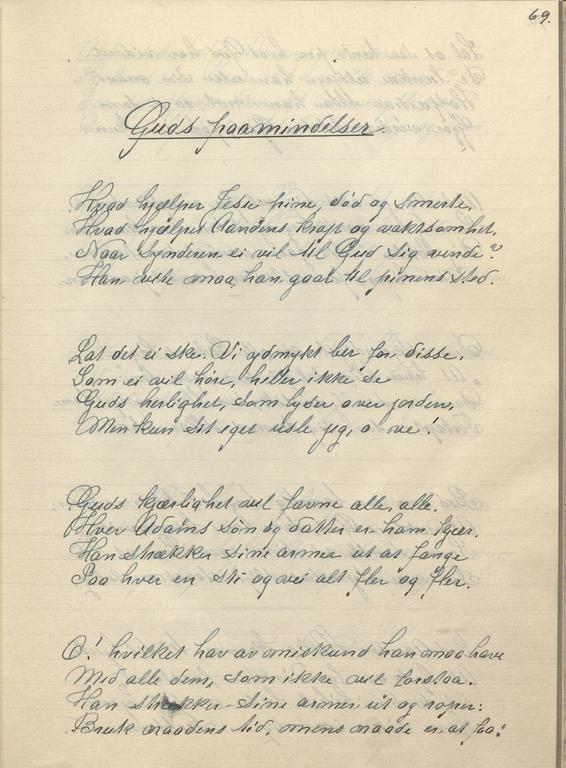 69.
Guds paamindelser.
Hvad hjælper Jesu pine, død og smerte,
Hvad hjælper Aandens kraft og vaktsomhet,
Naar synderen ei vil til Gud sig vende?
Han vite maa, han gaar til pinens sted.
Lat det ei ske. Vi ydmykt ber for disse,
Som ei vil høre, heller ikke se
Guds herlighet, som lyser over jorden,
Men kun sit eget usle jeg, o ve!
Guds kjærlighet vil favne alle, alle.
Hver Adams søn og datter er ham kjær.
Han strækker sine armer ut at fange
Paa hver en sti og vei alt fler og fler.
O! hvilket hav av miskund han maa have
Med alle dem, som ikke vil forstaa.
Han strækker sine armer ut og roper:
Bruk naadens tid, mens naade er at faa!